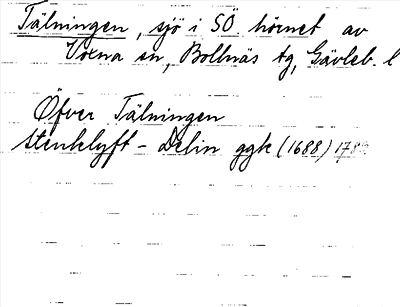 Tälningen, sjö i SÖ hörnet av
Voxna sn, Bollnäs tg, Gävleb. l
Öfver Tälningen
Stenklyft - Delin ggk (1688)